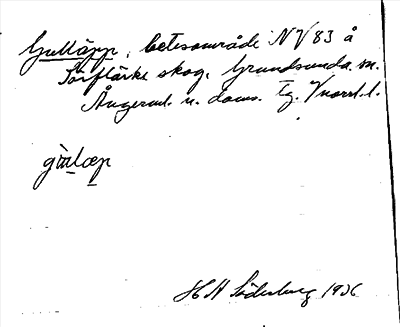 Gulläpp, betesområde NV 83 å
Sörflärke skog, Grundsunda sn.
Ångerml. n. doms. tg. Vnorrl. l.
gɷ̀læp
H N Söderberg 1936